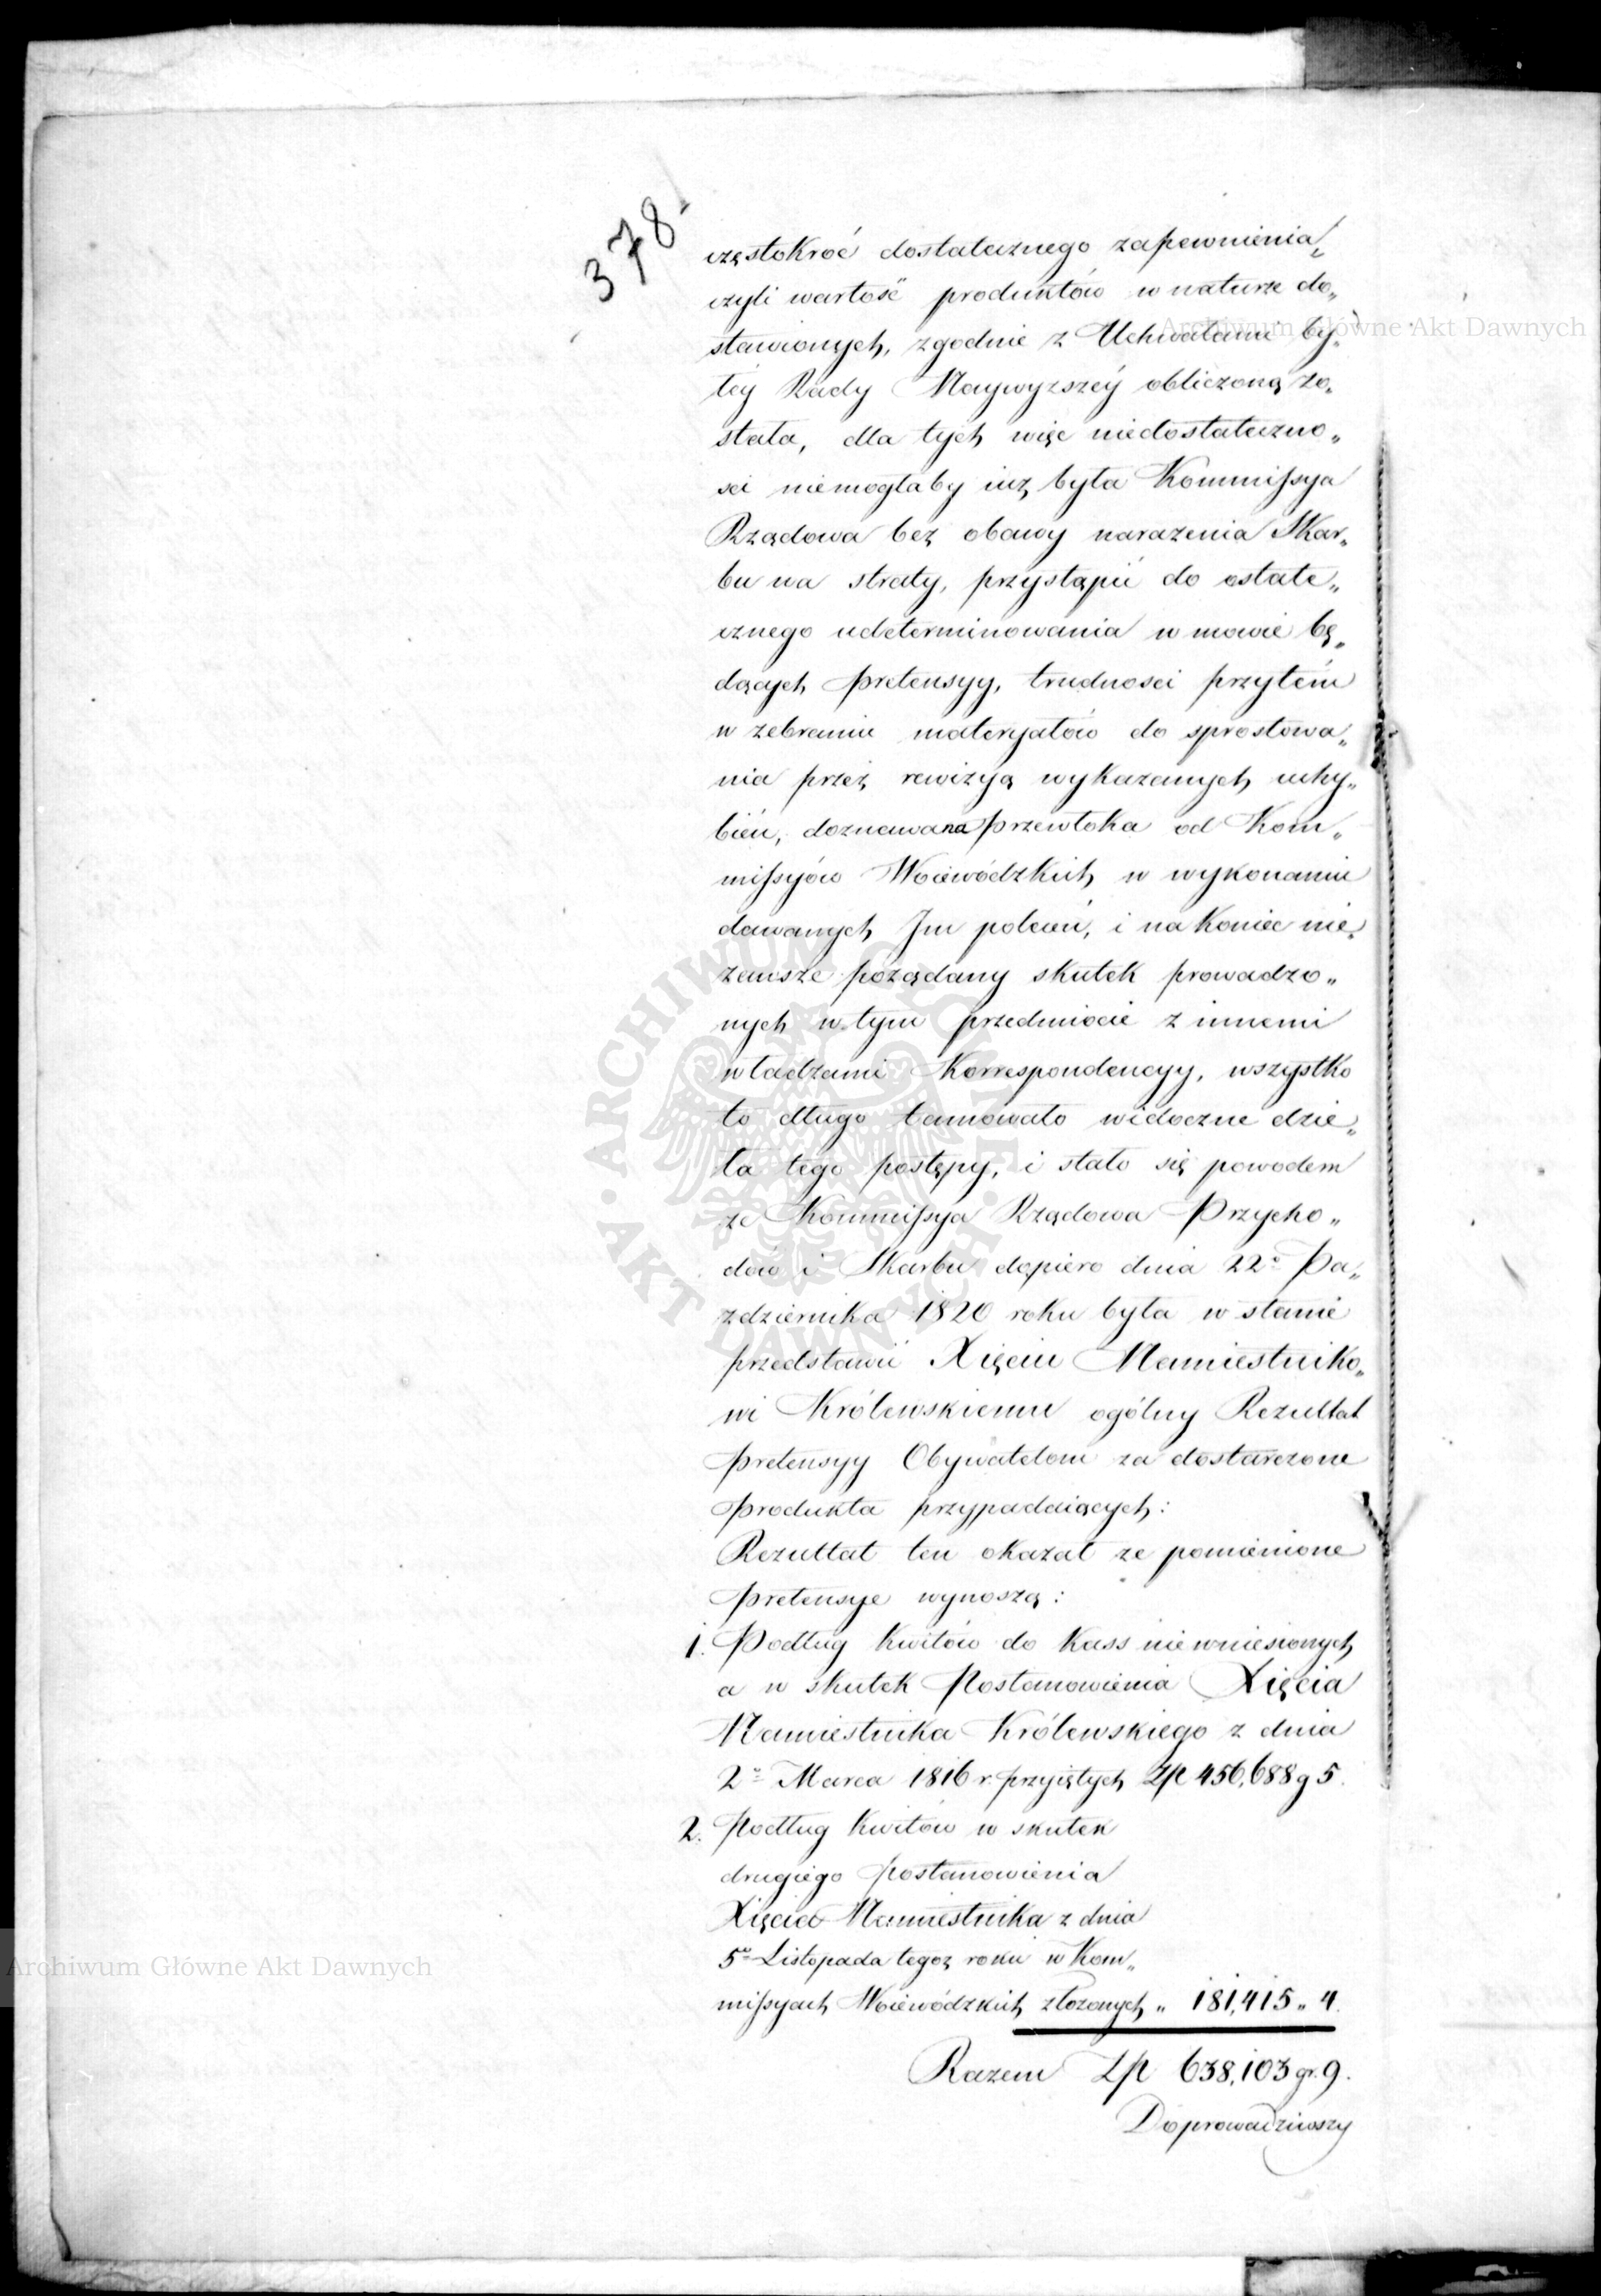 378.
częstokroć dostatecznego zapewnienia„
czyli wartość produktów w naturze do„
stawionych, zgodnie z Uchwałami by„
łey Rady Naywyzszéy obliczoną zo„
stała, dla tych więc niedostateczno„
sci niemogłaby iuż była Kommissya
Rządowa bez obawy narazenia Skar„
bu na straty, przystąpić do ostate„
cznego udeterminowania w mowie bę„
dących pretensyy, trudnosci przytém
w zebraniu materyałów do sprostowa„
nia przez rewizyą wykazanych uchy„
bień, doznawana przewłoka od Kom„
missyów Woiewódzkich w wykonaniu
dawanych Im poleceń, i na koniec nie
zawsze pożądany skutek prowadzo„
nych w tym przedmiocie z innemi
władzami Korrespondencyy, wszystko
to długo tamowało widoczne dzie„
ła tego postępy, i stało się powodem
ze Kommissya Rządowa Przycho„
dów i Skarbu dopiero dnia 22º Pa„
zdziernika 1820 roku była w stanie
przedstawić Xięciu Namiestniko„
wi Królewskiemu ogólny Rezultat
pretensyy Obywatelom za dostarczone
produkta przypadaiących:
Rezultat ten okazał ze pomienione
pretensye wynoszą:
1. Podług kwitów do Kass niewniesionych
a w skutek Postanowienia Xięcia
Namiestnika Królewskiego z dnia
2º Marca 1816 r. przyiętych Zp 456,688 g 5.
2. Podług kwitów w skutek
drugiego postanowienia
Xięcia Namiestnika z dnia
5º Listopada tegoż roku w Kom„
missyach Woiewódzkich złozonych „ 181,415 „ 4.
Razem Zp 638,103 gr. 9.
Doprowadziwszy
Archiwum Główne Akt Dawnych
Archiwum Główne Akt Dawnych
ARCHIWUM GŁÓWNE
AKT DAWNYCH